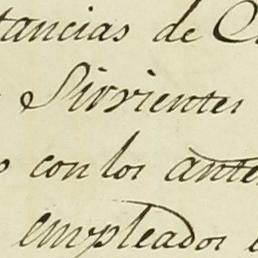 tancias de C
Sirvientes
s con los ante
empleados